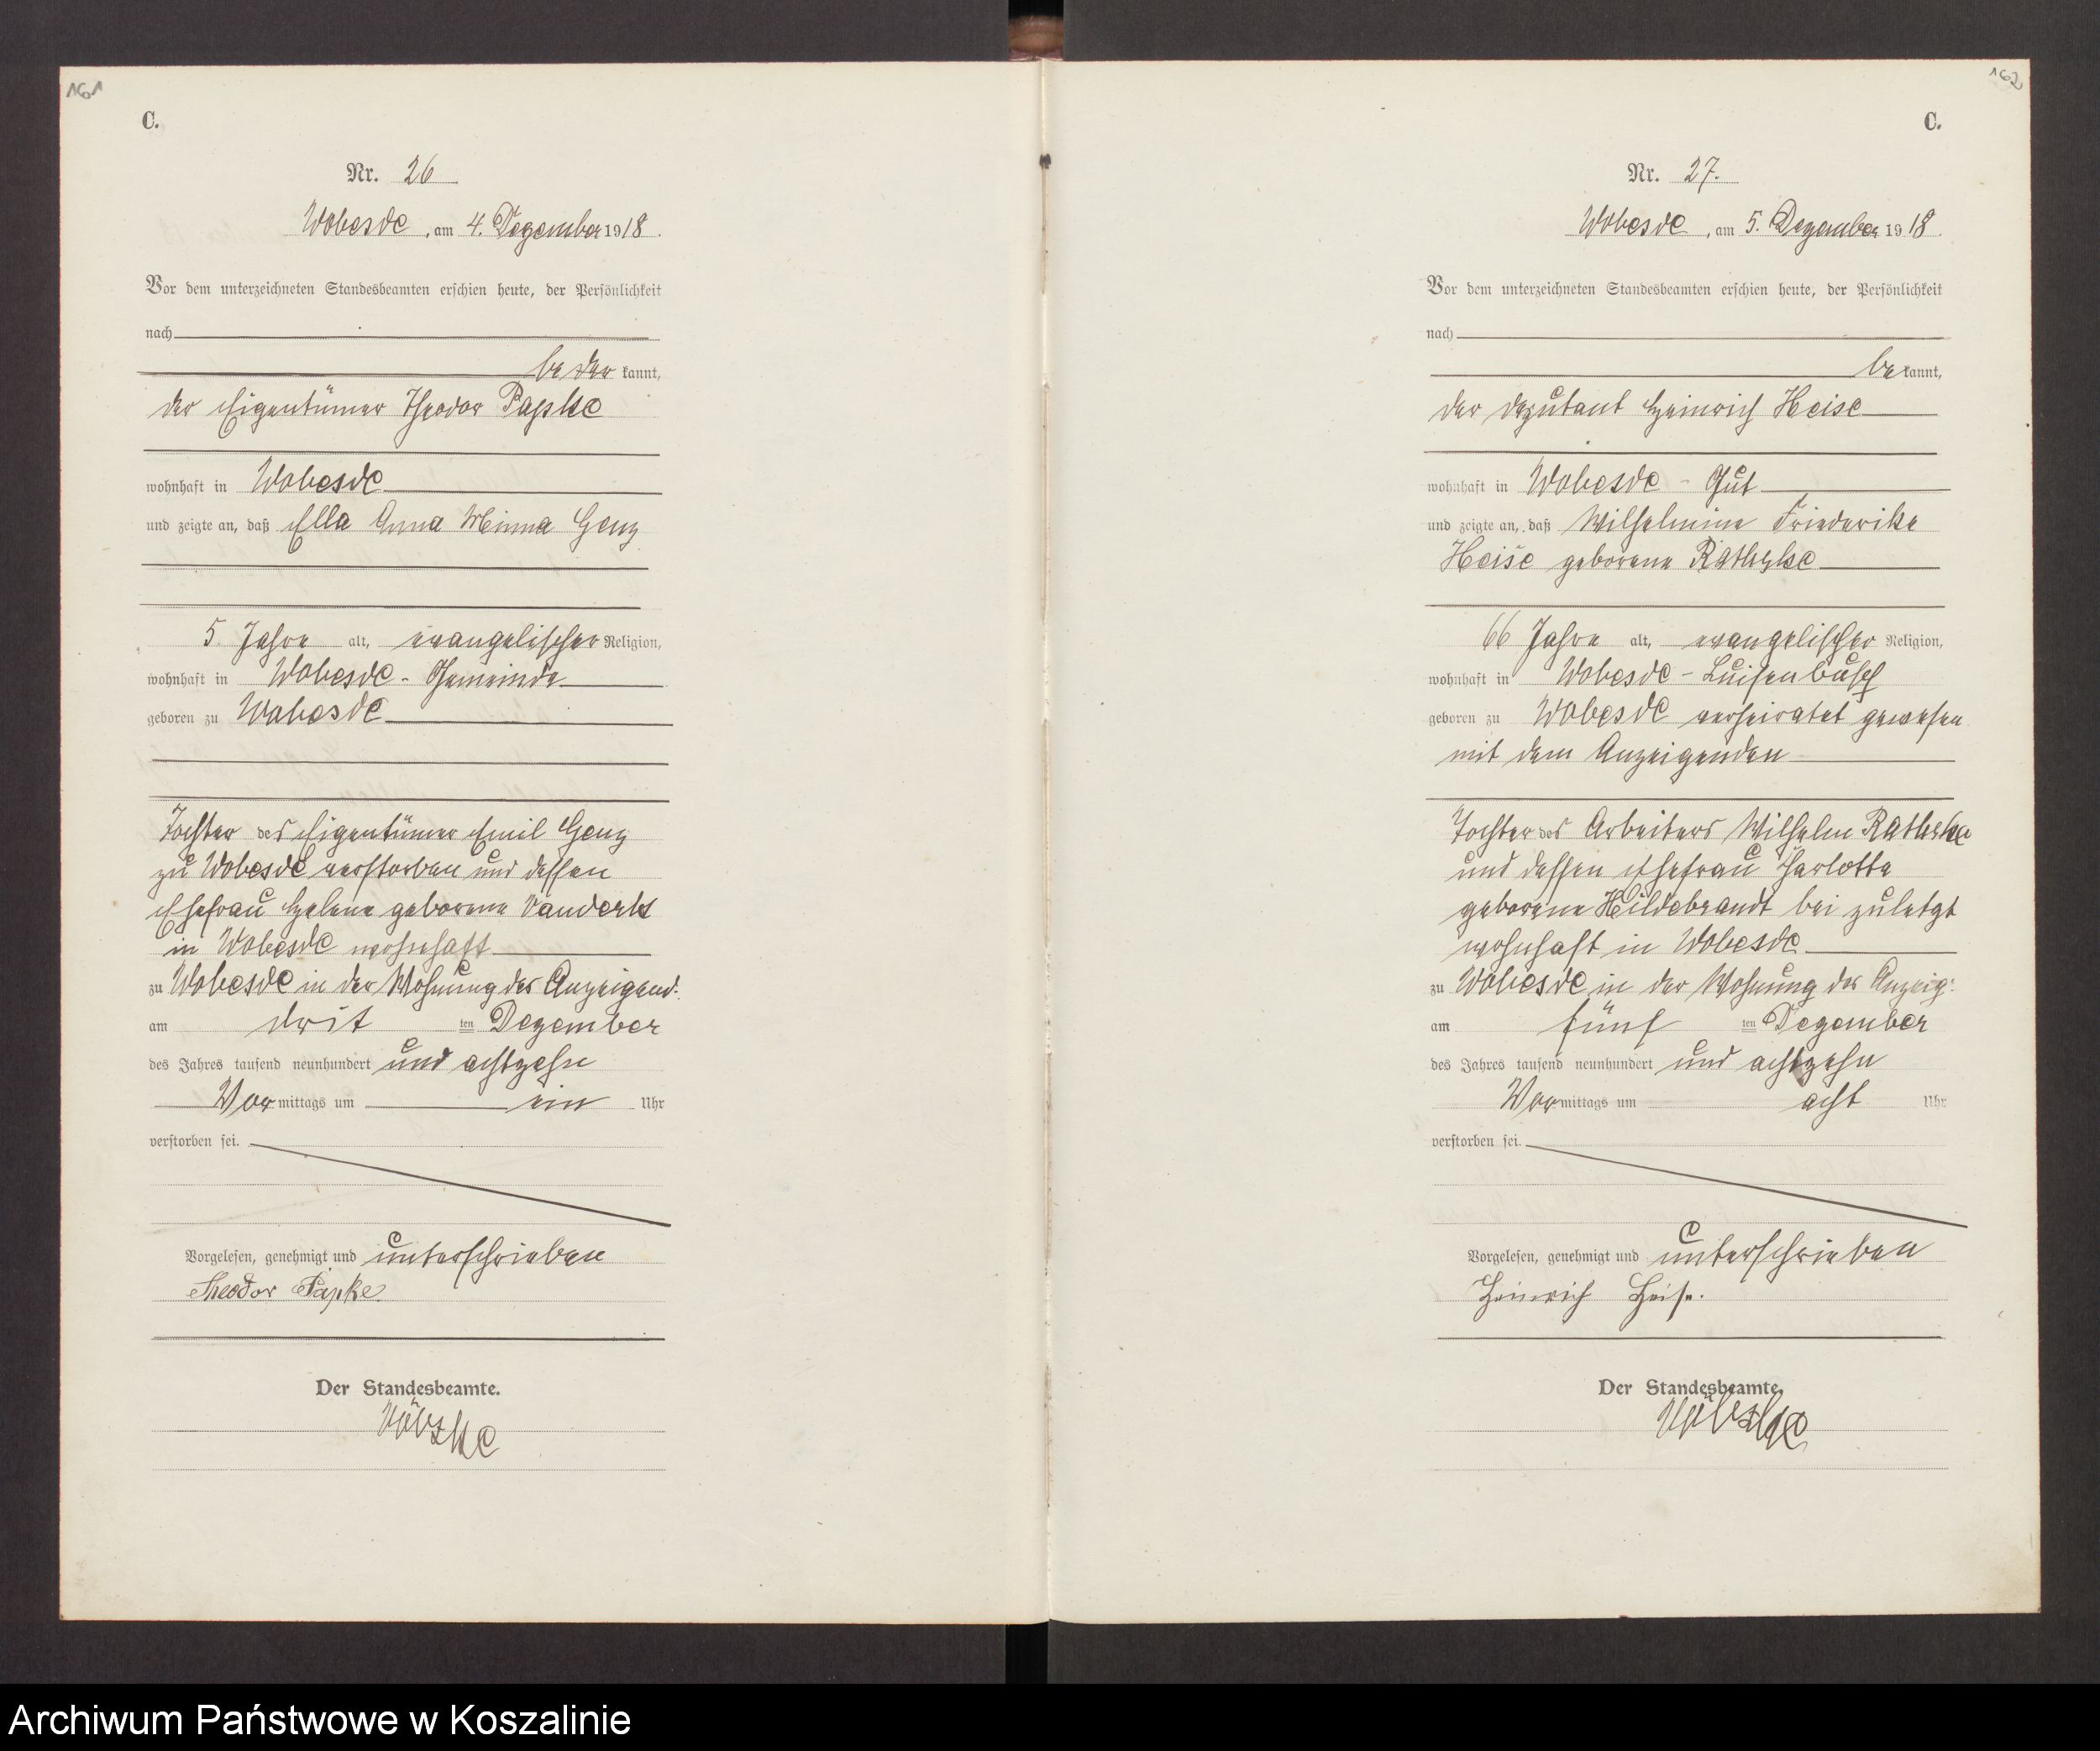 161
C.
Nr. 26
Wobesde, am 4. Dezember 1918.
Vor dem unterzeichneten Standesbeamten erschien heute, der Persönlichkeit
nach
be der kannt,
der Eigentümer Theodor Papke
wohnhaft in Wobesde
und zeigte an, daß Ella Anna Minna Genz
5 Jahre alt, evangelischer Religion,
wohnhaft in Wobesde - Gemeinde
geboren zu Wobesde
Tochter des Eigentümer Emil Genz
zu Wobesde verstorben und dessen
Ehefrau Helene geborene
in Wobesde wohnhaft
zu Wobesde in der Wohnung des Anzeigend.
am drit ten Dezember
des Jahres tausend neunhundert und achtzehn
Vormittags um ein Uhr
verstorben sei.
Vorgelesen, genehmigt und unterschrieben
Theodor Papke
Der Standesbeamte.
162
C.
Nr. 27.
Wobesde, am 5. Dezember 1918.
Vor dem unterzeichneten Standesbeamten erschien heute, der Persönlichkeit
nach
bekannt,
der Deputant Heinrich Heise
wohnhaft in Wobesde - Gut
und zeigte an, daß Wilhelmine Friederike
Heise geborene Rathske
66 Jahre alt, evangelischer Religion,
wohnhaft in Wobesde - Luisenbusch
geboren zu Wobesde verheiratet gewesen
mit dem Anzeigenden
Tochter des Arbeiters Wilhelm Rathske
und dessen Ehefrau Charlotte
geborene Hildebrandt bei zuletzt
wohnhaft in Wobesde
zu Wobesde in der Wohnung des Anzeig.
am fünf ten Dezember
des Jahres tausend neunhundert und achtzehn
Vormittags um acht Uhr
verstorben sei.
Vorgelesen, genehmigt und unterschrieben
Heinrich Heise.
Der Standesbeamte.
Archiwum Państwowe w Koszalinie